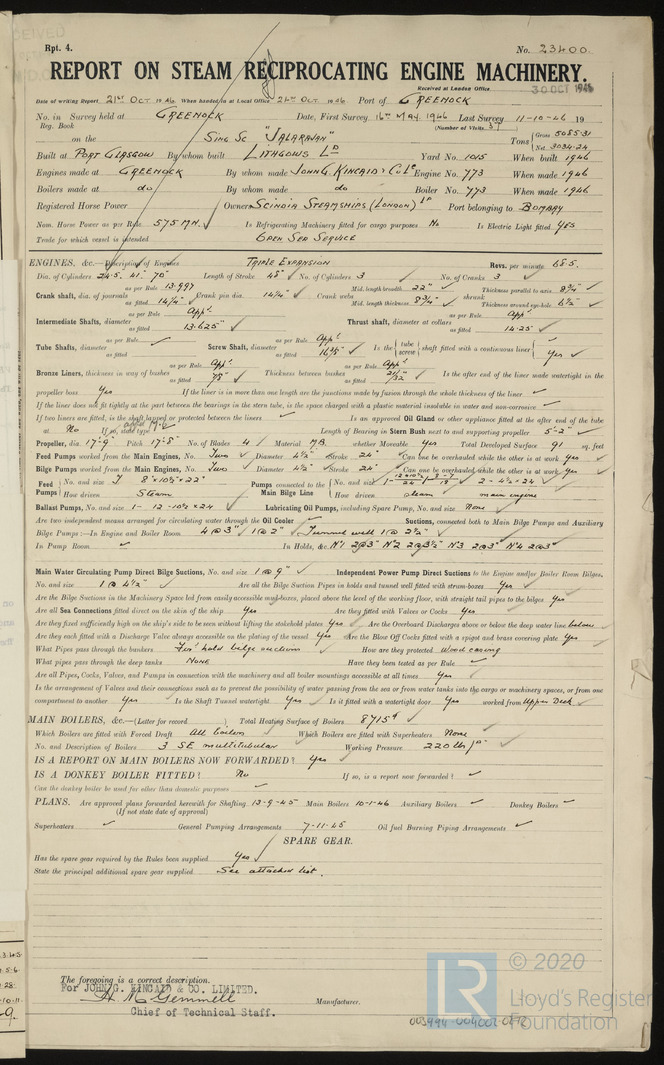 Rpt. 4.
No. 23400.
REPORT ON STEAM RECIPROCATING ENGINE MACHINERY.
Received at London Office 30 OCT 1946
Date of writing Report 21st OCT 1946 When handed in at Local Office 24th OCT 1946 Port of GREENOCK
No. in Survey held at GREENOCK Date, First Survey 16th MAY 1946 Last Survey 11-10-46 19
Reg. Book (Number of Visits 37)
on the Sing Sc "JALARAJAN" Tons Gross 5085.31
Net 3034.24
Built at PORT GLASGOW By whom built LITHGOWS LD Yard No. 1015 When built 1946
Engines made at GREENOCK By whom made JOHN G. KINCAID & Co Engine No. 773 When made 1946
Boilers made at do By whom made do Boiler No. 773 When made 1946
Registered Horse Power Owners SCINDIA STEAMSHIPS (LONDON) LD Port belonging to BOMBAY
Nom. Horse Power as per Rule 575 MN. Is Refrigerating Machinery fitted for cargo purposes No Is Electric Light fitted YES
Trade for which vessel is intended OPEN SEA SERVICE
ENGINES, &c.—Description of Engines TRIPLE EXPANSION Revs. per minute 68.5.
Dia. of Cylinders 24.5. 41" 70" Length of Stroke 48" No. of Cylinders 3 No. of Cranks 3
Crank shaft, dia. of journals as per Rule 13.997 as fitted 14 1/4" Crank pin dia. 14 1/4" Crank webs Mid. length breadth 22" Mid. length thickness 8 3/4" shrunk Thickness parallel to axis 8 3/4" Thickness around eye-hole 6 1/2"
Intermediate Shafts, diameter as per Rule App'd as fitted 13.625" Thrust shaft, diameter at collars as per Rule App'd as fitted 14.25
Tube Shafts, diameter as per Rule as fitted Screw Shaft, diameter as per Rule App'd as fitted Is the tube screw shaft fitted with a continuous liner Yes
Bronze Liners, thickness in way of bushes as per Rule App'd as fitted 7/8" Thickness between bushes as per Rule App'd as fitted 21/32" Is the after end of the liner made watertight in the
propeller boss Yes If the liner is in more than one length are the junctions made by fusion through the whole thickness of the liner
If the liner does not fit tightly at the part between the bearings in the stern tube, is the space charged with a plastic material insoluble in water and non-corrosive
If two liners are fitted, is the shaft lapped or protected between the liners Is an approved Oil Gland or other appliance fitted at the after end of the tube
at No If so, state type Length of Bearing in Stern Bush next to and supporting propeller 5'-2"
Propeller, dia. 17'-9" Pitch 17'-8" No. of Blades 4 Material M.B. whether Moveable Yes Total Developed Surface 91 sq. feet
Feed Pumps worked from the Main Engines, No. Two Diameter 4 1/2" Stroke 24" Can one be overhauled while the other is at work Yes
Bilge Pumps worked from the Main Engines, No. Two Diameter 4 1/2" Stroke 24" Can one be overhauled while the other is at work Yes
Feed Pumps No. and size 8" x 10 1/2" x 22" Pumps connected to the Main Bilge Line No. and size 2 - 4 1/2 - 24
How driven Steam How driven steam main engine
Ballast Pumps, No. and size 1- 12 - 10 1/2 x 24 Lubricating Oil Pumps, including Spare Pump, No. and size None
Are two independent means arranged for circulating water through the Oil Cooler Suctions, connected both to Main Bilge Pumps and Auxiliary
Bilge Pumps:—In Engine and Boiler Room 4 @ 3" 1 @ 2" Tunnel well 1 @ 2 1/2"
In Pump Room In Holds, &c. No 1 2@3" No 2 2@3 1/2" No 3 2@3" No 4 2@3"
Main Water Circulating Pump Direct Bilge Suctions, No. and size 1 @ 9" Independent Power Pump Direct Suctions to the Engine and/or Boiler Room Bilges,
No. and size 1 @ 4 1/2" Are all the Bilge Suction Pipes in holds and tunnel well fitted with strum-boxes Yes
Are the Bilge Suctions in the Machinery Space led from easily accessible mud-boxes, placed above the level of the working floor, with straight tail pipes to the bilges Yes
Are all Sea Connections fitted direct on the skin of the ship Yes Are they fitted with Valves or Cocks Yes
Are they fixed sufficiently high on the ship's side to be seen without lifting the stokehold plates Yes Are the Overboard Discharges above or below the deep water line below
Are they each fitted with a Discharge Valve always accessible on the plating of the vessel Yes Are the Blow Off Cocks fitted with a spigot and brass covering plate Yes
What Pipes pass through the bunkers For'd hold bilge suctions How are they protected wood casing
What pipes pass through the deep tanks NONE Have they been tested as per Rule
Are all Pipes, Cocks, Valves, and Pumps in connection with the machinery and all boiler mountings accessible at all times Yes
Is the arrangement of Valves and their connections such as to prevent the possibility of water passing from the sea or from water tanks into the cargo or machinery spaces, or from one
compartment to another Yes Is the Shaft Tunnel watertight Yes Is it fitted with a watertight door Yes worked from Upper Deck
MAIN BOILERS, &c.—(Letter for record ) Total Heating Surface of Boilers 8715
Which Boilers are fitted with Forced Draft All boilers Which Boilers are fitted with Superheaters None
No. and Description of Boilers 3 SE multitubular Working Pressure 220 lbs
IS A REPORT ON MAIN BOILERS NOW FORWARDED? Yes
IS A DONKEY BOILER FITTED? No If so, is a report now forwarded?
Can the donkey boiler be used for other than domestic purposes
PLANS. Are approved plans forwarded herewith for Shafting 13-9-45 Main Boilers 10-1-46 Auxiliary Boilers Donkey Boilers
(If not state date of approval)
Superheaters General Pumping Arrangements 7-11-45 Oil fuel Burning Piping Arrangements
SPARE GEAR.
Has the spare gear required by the Rules been supplied Yes
State the principal additional spare gear supplied See attached list.
The foregoing is a correct description.
For JOHN G. KINCAID & CO. LIMITED.
H. M. Gemmell Manufacturer.
Chief of Technical Staff.
© 2020
LR Lloyd's Register
Foundation
003994-004002-0272